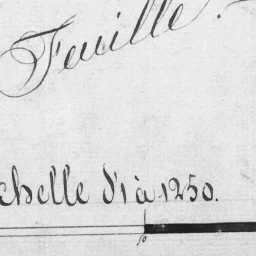 Feuille.
chelle d'1 à 1250.
10